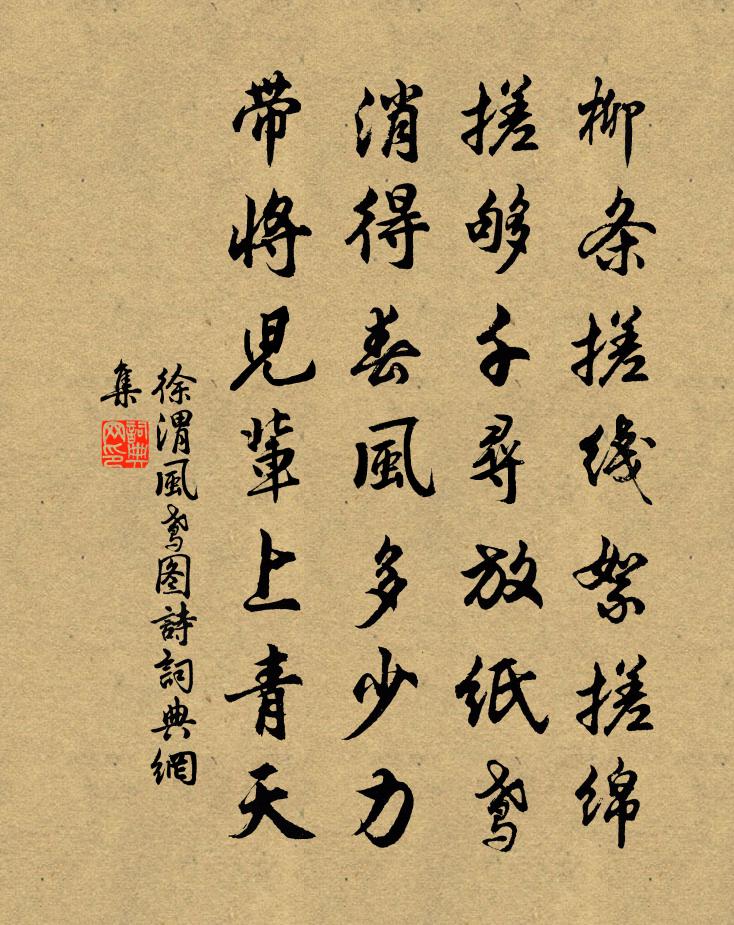 柳条搓线絮搓绵
搓够千寻放纸鸢
消得春風多少力
带将児輩上青天
徐渭風鸢图詩詞典網
集
詞典
网印